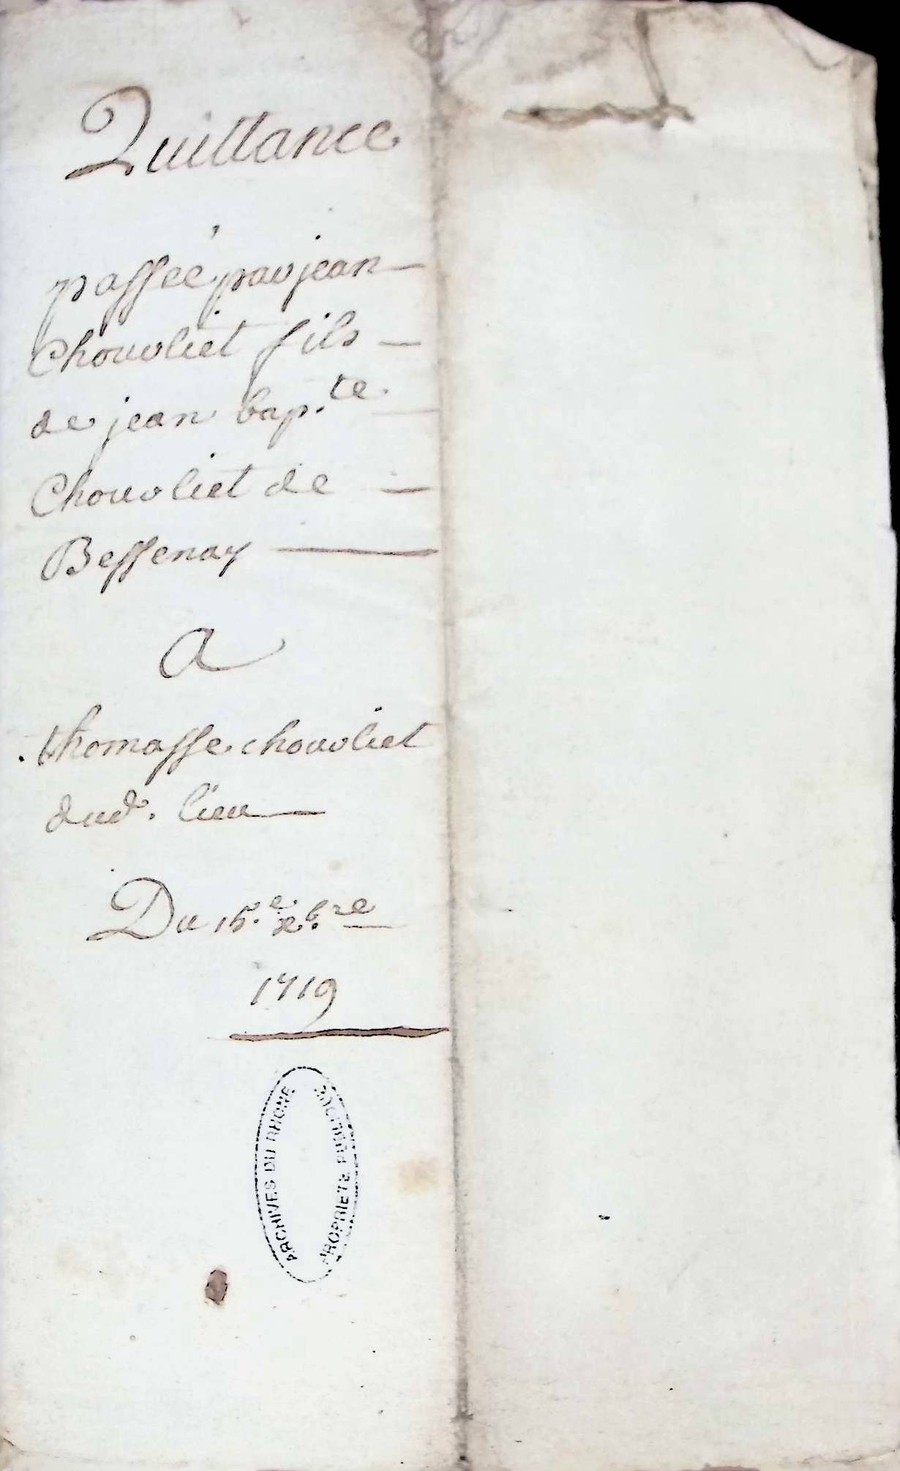 Quittance
passée par jean
Chouvliet fils
de jean bap.te
Chouvliet de
Bessenay
A
thomasse chouvliet
dud. lieu
Du 15.e xb.re
1719
ARCHIVES DU RHONE
PROPRIETE PUBLIQUE